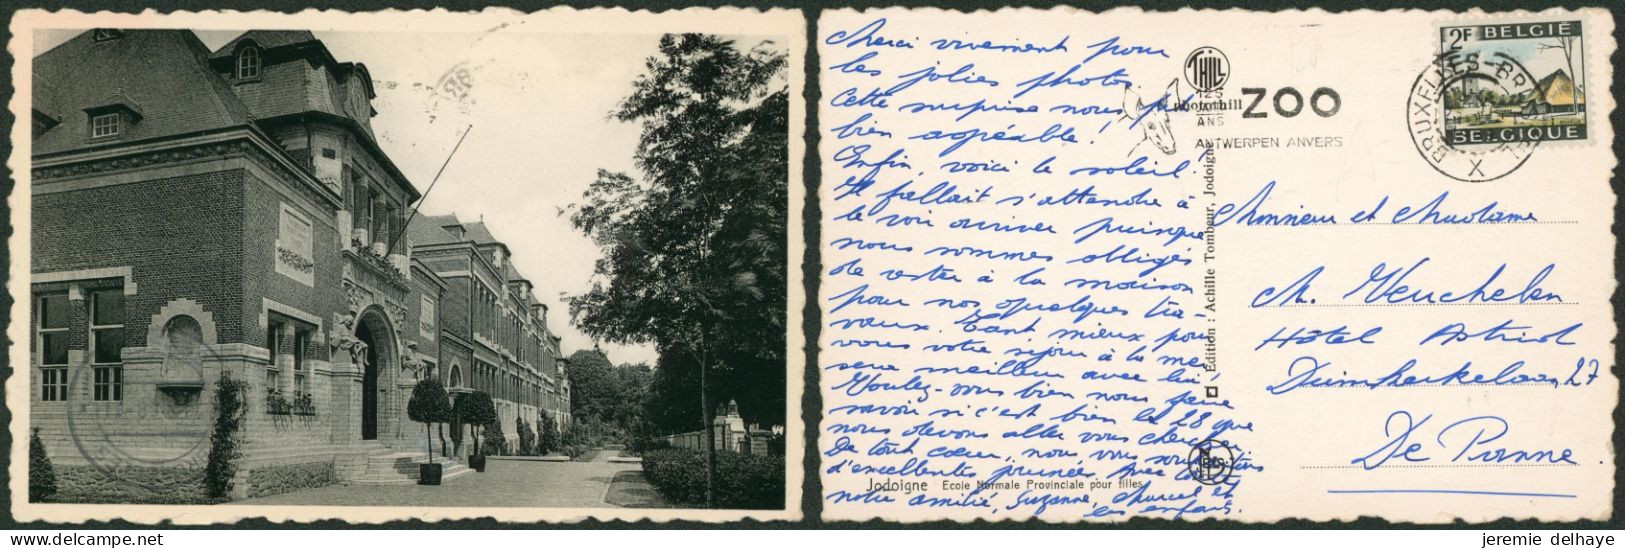 Merci vivement pour
les jolies photos
Cette surprise nous fut
bien agréable !
Enfin, voici le soleil !
Il fallait s'attendre à
le voir arriver puisque
nous sommes obligés
de rester à la maison
pour nos quelques tra-
vaux. Tant mieux pour
vous votre séjour à la mer
sera meilleur avec lui.
Voulez-vous bien nous faire
savoir si c'est bien le 28 que
nous devons aller vous chercher
De tout cœur, nous vous souhaitons
d'excellentes journées avec toute
notre amitié, Suzanne, Marcel et
les enfants.
Jodoigne Ecole Normale Provinciale pour filles
THILL
photothill
125
ANS
ZOO
ANTWERPEN ANVERS
Edition : Achille Tombeur, Jodoigne
NELS
2F BELGIË
BELGIQUE
BRUXELLES-BRUSSEL
X
Monsieur et Madame
M. Meuchelen
Hôtel Astrid
Duinkerkelaan, 27
De Panne.
jeremie delhaye